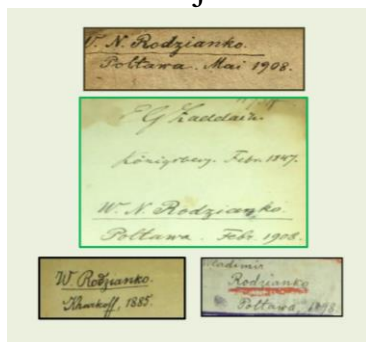 W. N. Rodzianko.
Poltawa. Mai 1908.
E G Zaddach.
Königsberg. Febr. 1847.
W. N. Rodzianko.
Poltawa. Febr. 1908.
W. Rodzianko.
Kharkoff, 1885.
Wladimir
Rodzianko
Poltawa, 1898